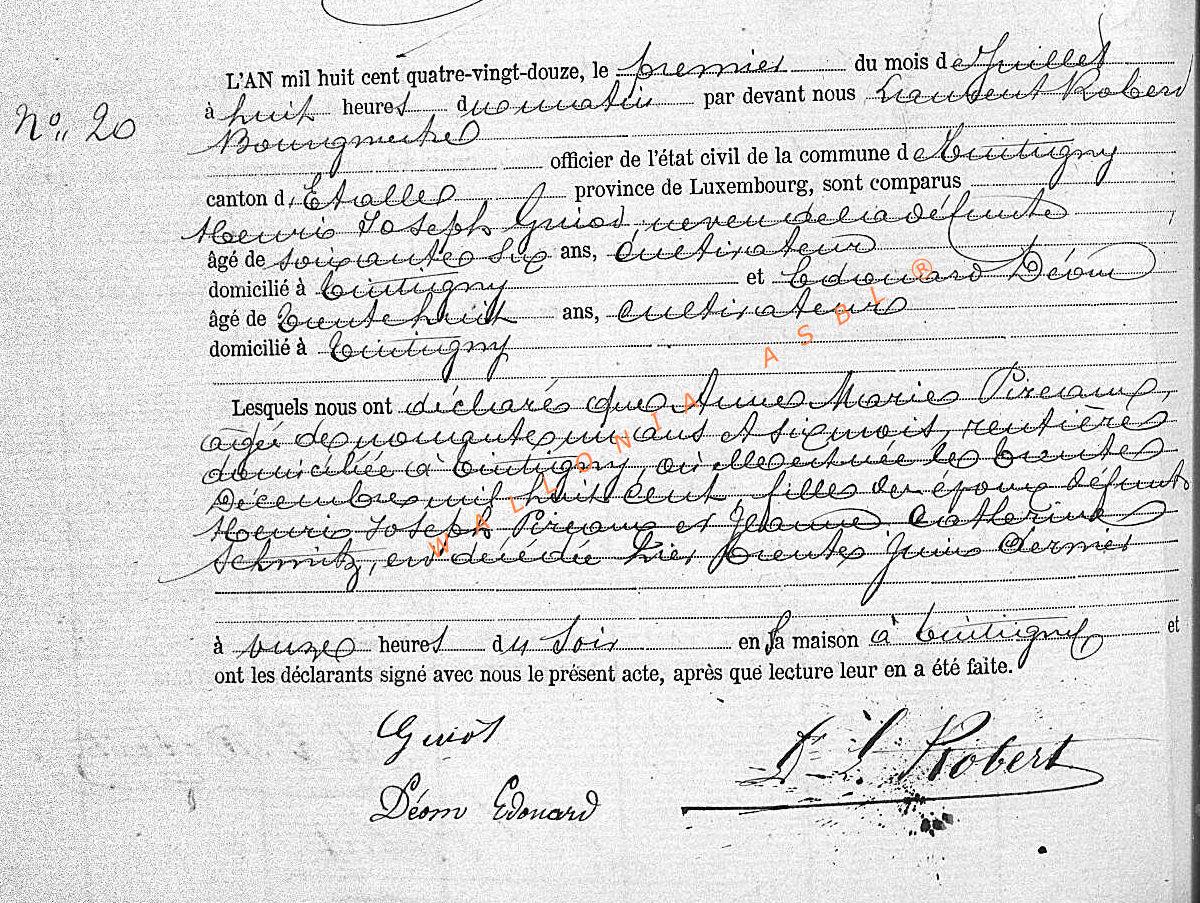 L'AN mil huit cent quatre-vingt-douze, le premier du mois de Juillet
No. 20
à huit heures du matin par devant nous Laurent Robert
Bourgmestre
officier de l'état civil de la commune de Tintigny
canton d'Etalle province de Luxembourg, sont comparus
Henri Joseph Guiot, neveu de la défunte
âgé de soixante six ans, cultivateur
domicilié à Tintigny et Edouard Déom
âgé de trente huit ans, cultivateur
domicilié à Tintigny
Lesquels nous ont déclaré que Anne Marie Pireaux,
âgée de nonante un ans et six mois, rentière
domiciliée à Tintigny, où elle est née le trente
Décembre mil huit cent, fille des époux défunts
Henri Joseph Pireaux et Jeanne Catherine
Schmitz, est décédée hier trente Juin dernier
à onze heures du soir en sa maison à Tintigny et
ont les déclarants signé avec nous le présent acte, après que lecture leur en a été faite.
Guiot
Dr L Robert
Déom Edouard
WALLONIA ASBL ®